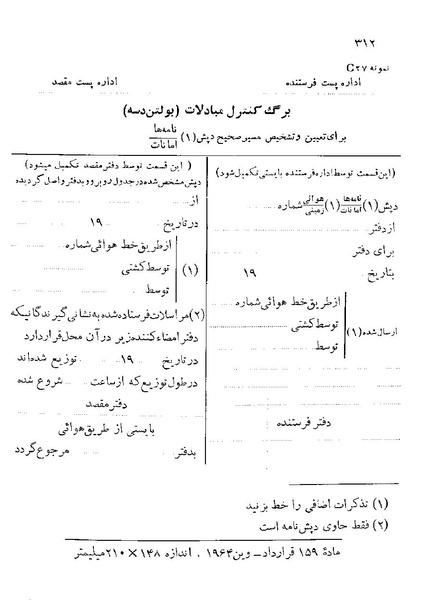 ۳۱۲
نمونه C۲۷
اداره پست فرستنده
اداره پست مقصد
برگ کنترل مبادلات (بولتن دسه)
برای تعیین و تشخیص مسیر صحیح دپش (۱) نامه‌ها / امانات
(این قسمت توسط اداره فرستنده بایستی تکمیل شود)
دپش (۱) نامه‌ها / امانات (۱) هوائی / زمینی شماره
از دفتر
برای دفتر
بتاریخ ۱۹
ارسال شده (۱)
از طریق خط هوائی شماره
توسط کشتی
توسط
دفتر فرستنده
(این قسمت توسط دفتر مقصد تکمیل میشود)
دپش مشخص شده در جدول روبرو و بدفتر واصل گردیده
از
در تاریخ ۱۹
(۱)
از طریق خط هوائی شماره
توسط کشتی
توسط
(۲) مراسلات فرستاده شده به نشانی گیرندگانیکه
دفتر امضاء کننده زیر در آن محل قرار دارد
در تاریخ ۱۹ توزیع شده‌اند
در طول توزیع که از ساعت شروع شده
دفتر مقصد
بایستی از طریق هوائی
بدفتر مرجوع گردد
(۱) تذکرات اضافی را خط بزنید
(۲) فقط حاوی دپش نامه است
مادهٔ ۱۵۹ قرارداد ـ وین ۱۹۶۴ . اندازه ۱۴۸ × ۲۱۰ میلیمتر